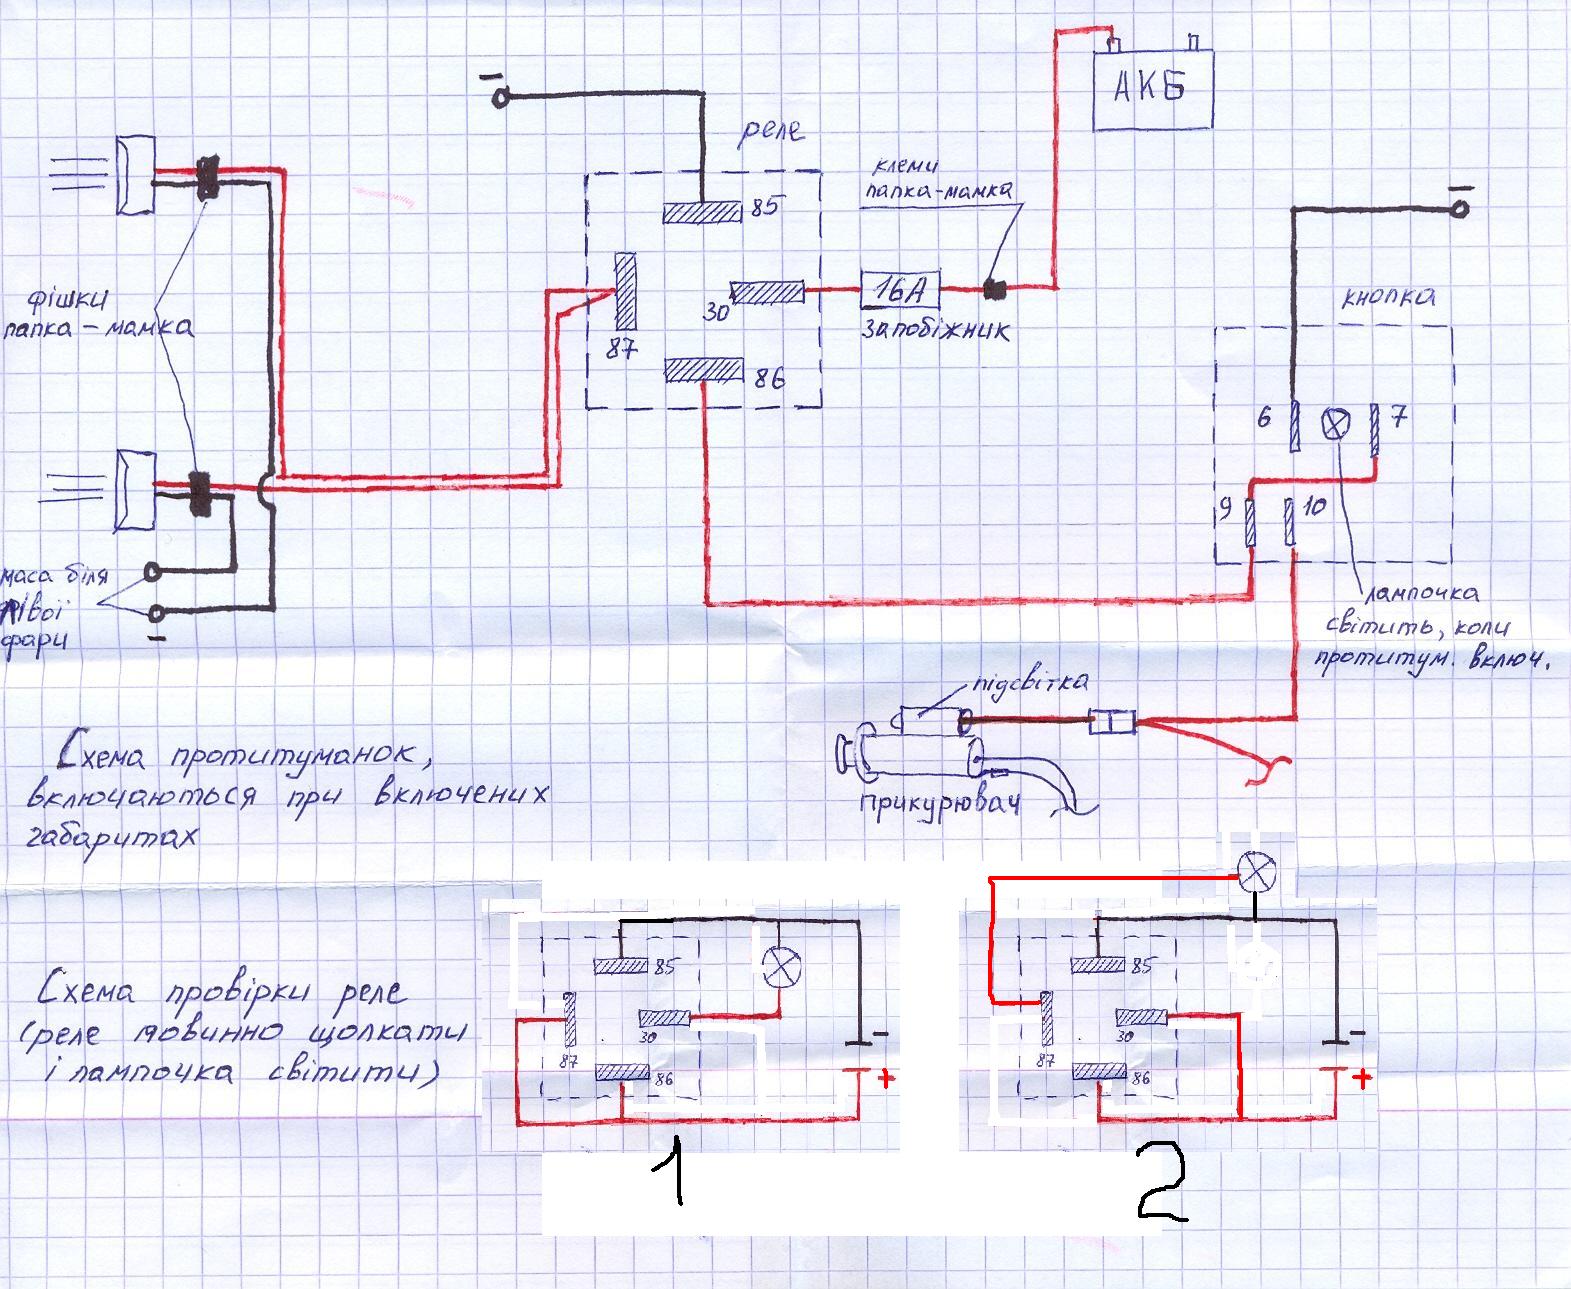 АКБ
реле
клеми
папка-мамка
85
30
87
86
16А
запобіжник
кнопка
6
7
9
10
фішки
папка-мамка
маса біля
лівої
фари
лампочка
світить, коли
протитум. включ.
підсвітка
прикурювач
Схема протитуманок,
включаються при включених
габаритах
Схема провірки реле
(реле повинно щолкати
і лампочка світити)
85
30
87
86
+
1
85
30
87
86
+
2